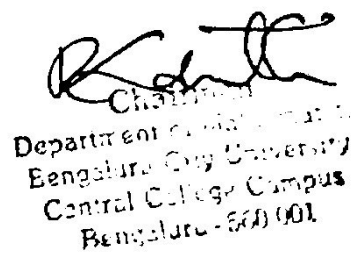 Chairman
Department of
Bengaluru City University
Central College Campus
Bengaluru - 560 001.